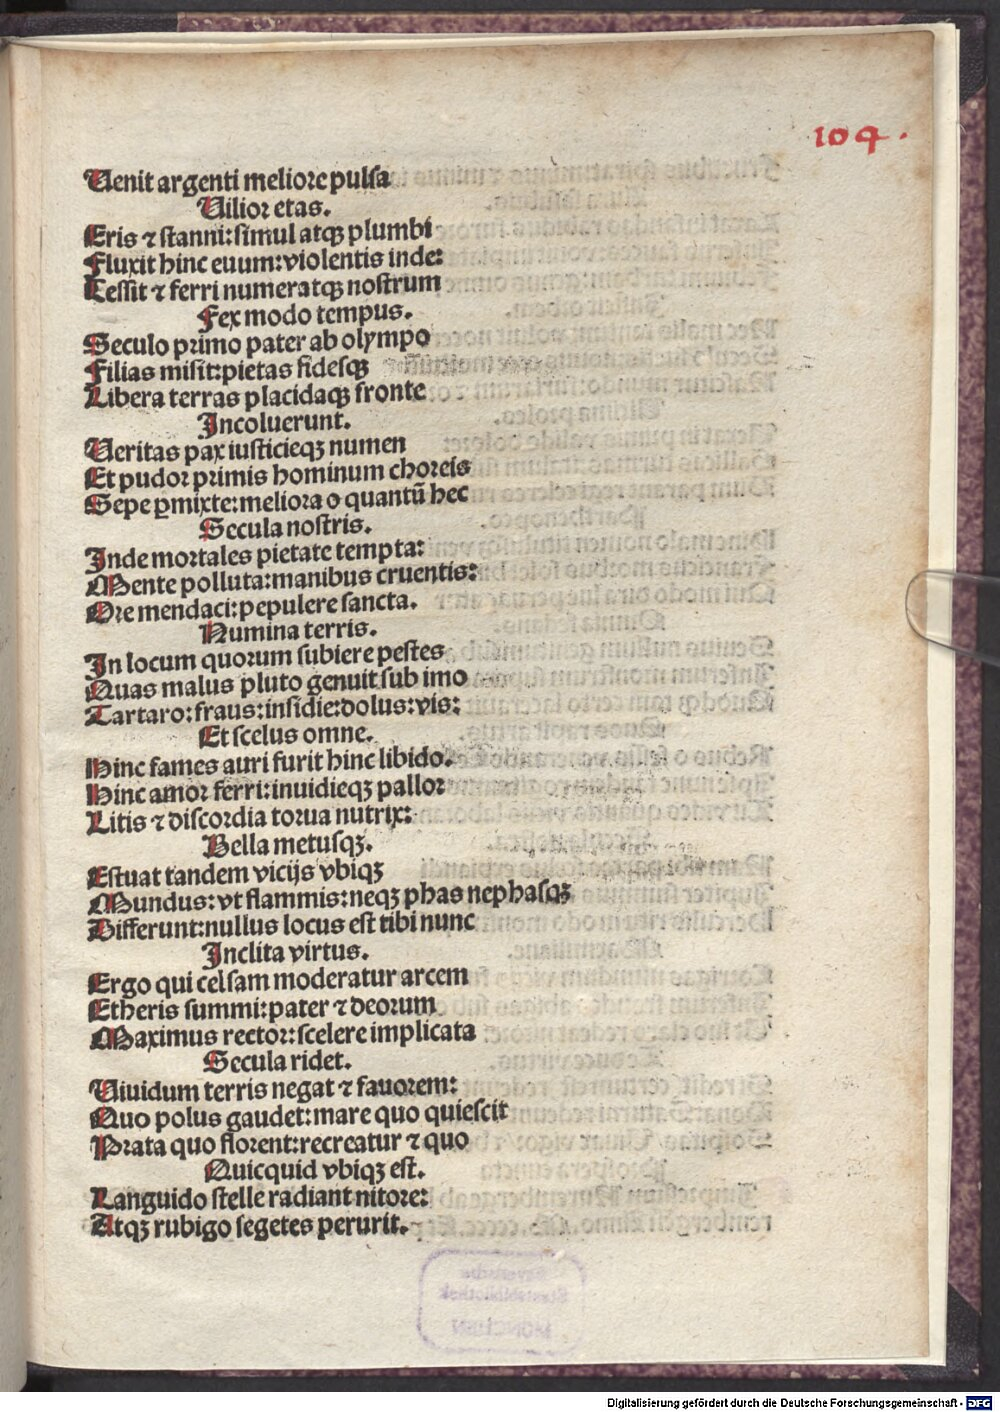 104.
Uenit argenti meliore pulsa
Uilior etas.
Eris ⁊ stanni: simul atqꝫ plumbi
Fluxit hinc euum: violentis inde:
Cessit ⁊ ferri numeratqꝫ nostrum
Fex modo tempus.
Seculo primo pater ab olympo
Filias misit: pietas fidesqꝫ
Libera terras placidaqꝫ fronte
Incoluerunt.
Ueritas pax iusticieqꝫ numen
Et pudor primis hominum choreis
Sepe ꝑmixte: meliora o quantū hec
Secula nostris.
Inde mortales pietate tempta:
Mente polluta: manibus cruentis:
Ore mendaci: pepulere sancta.
Numina terris.
In locum quorum subiere pestes
Quas malus pluto genuit sub imo
Tartaro: fraus: insidie: dolus: vis:
Et scelus omne.
Hinc fames auri furit hinc libido.
Hinc amor ferri: inuidieqꝫ pallor
Litis ⁊ discordia torua nutrix:
Bella metusqꝫ.
Estuat tandem vicijs vbiqꝫ
Mundus: vt flammis: neqꝫ phas nephasqꝫ
Differunt: nullus locus est tibi nunc
Inclita virtus.
Ergo qui celsam moderatur arcem
Etheris summi: pater ⁊ deorum
Maximus rector: scelere implicata
Secula ridet.
Uiuidum terris negat ⁊ fauorem:
Quo polus gaudet: mare quo quiescit
Prata quo florent: recreatur ⁊ quo
Quicquid vbiqꝫ est.
Languido stelle radiant nitore:
Atqꝫ rubigo segetes perurit.
Digitalisierung gefördert durch die Deutsche Forschungsgemeinschaft - DFG